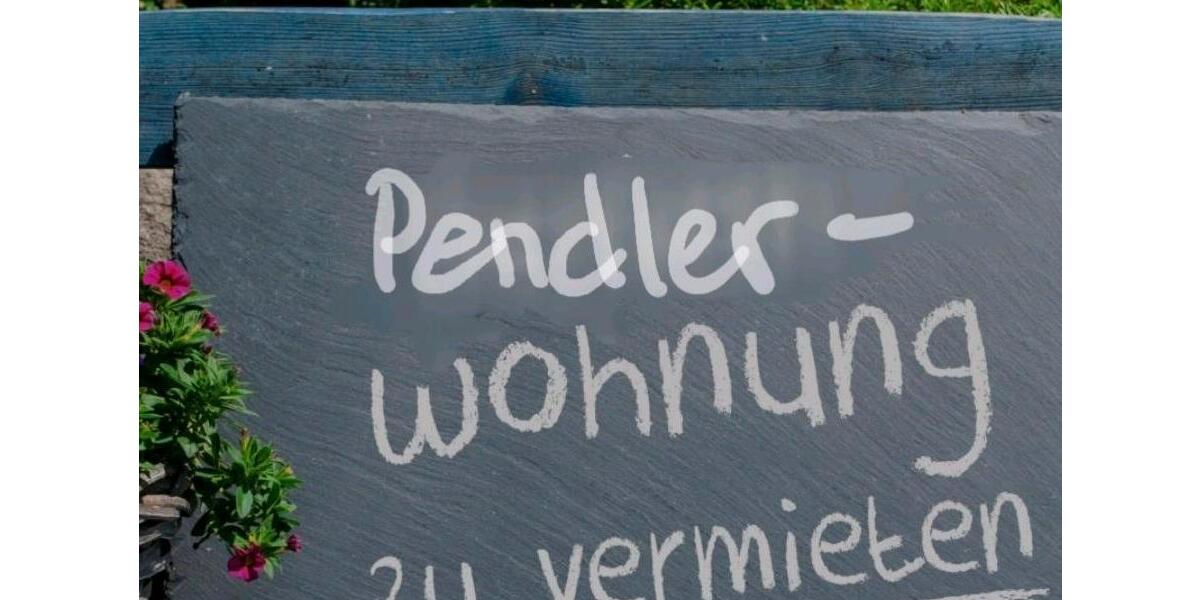 Pendler-
wohnung
zu vermieten